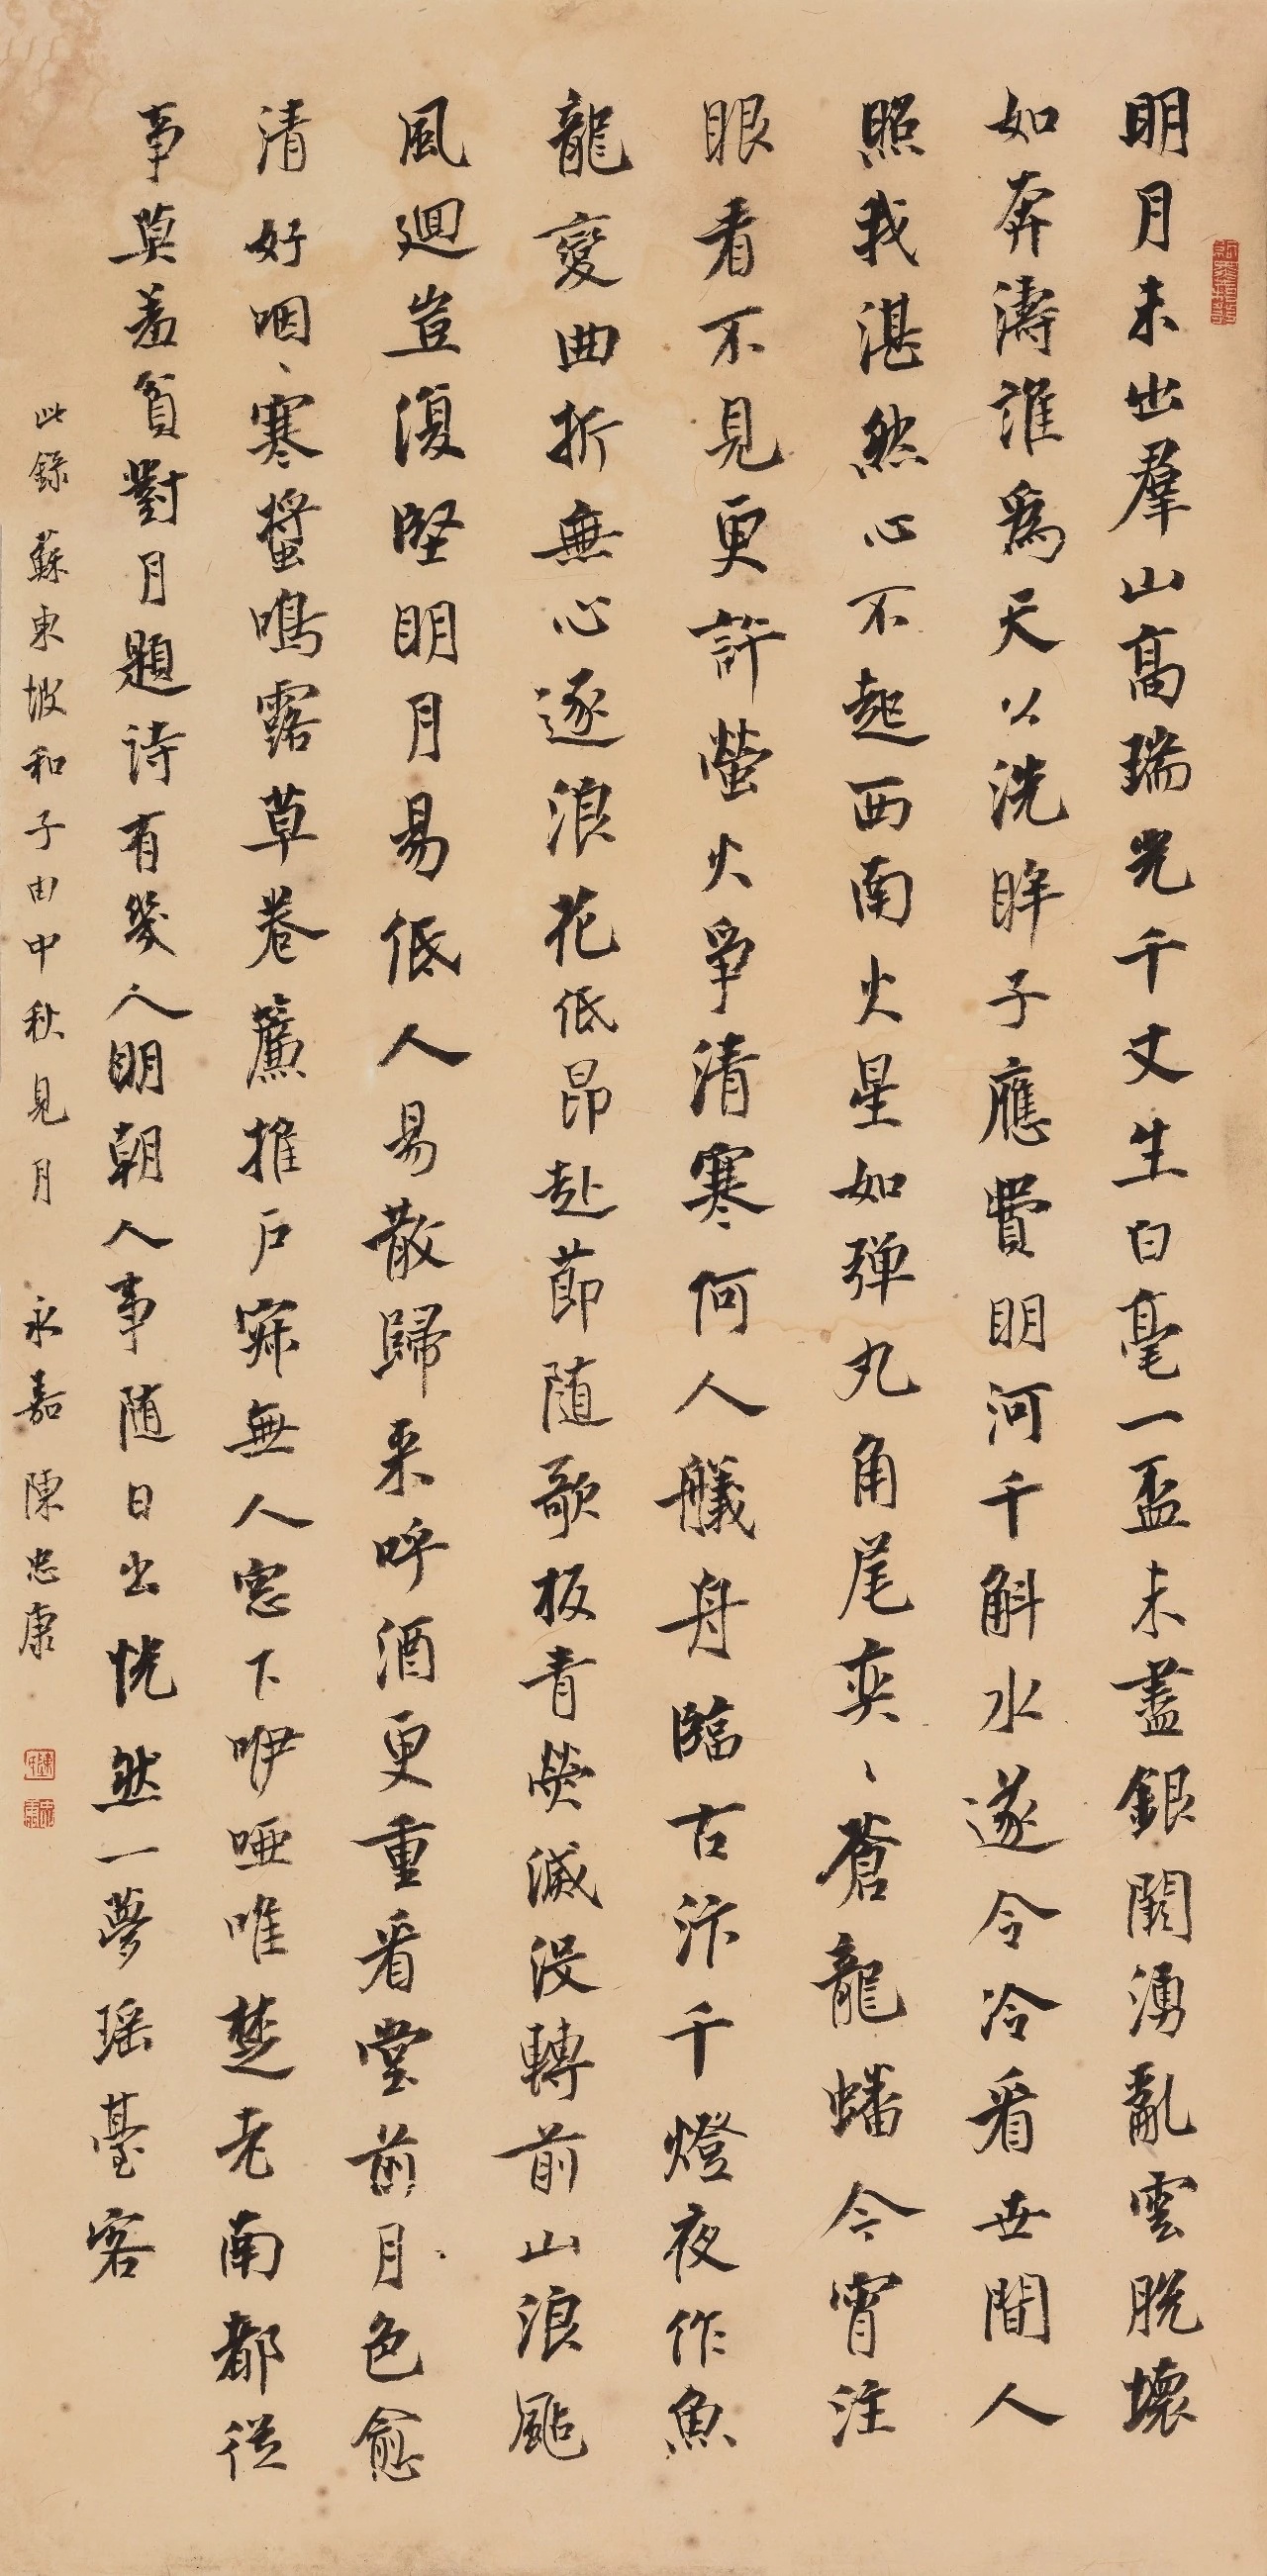 明月未出羣山高瑞光千丈生白毫一盃未盡銀闕湧亂雲脫壞
如奔濤誰為天公洗眸子應費明河千斛水遂令冷看世間人
照我湛然心不起西南火星如弹丸角尾奕〻蒼龍蟠今宵注
眼看不見更許螢火爭清寒何人艤舟臨古汴千燈夜作魚
龍變曲折無心逐浪花低昂赴節随歌板青熒滅没轉前山浪颭
風迴豈復堅明月易低人易散歸来呼酒更重看堂前月色愈
清好咽〻寒螿鳴露草卷簾推户寂無人窓下咿啞唯楚老南都從
事莫羞貧對月題诗有幾人明朝人事随日出恍然一夢瑶臺客
此錄蘇東坡和子由中秋見月 永嘉陳忠康